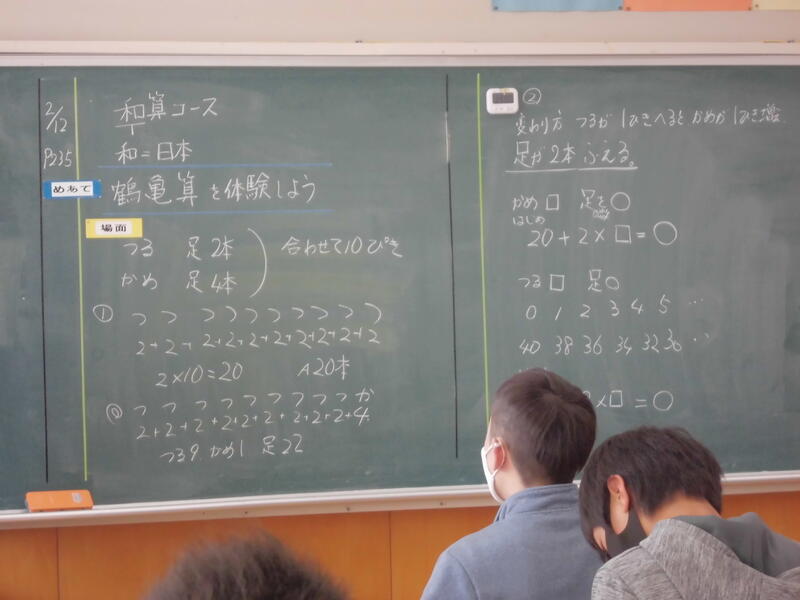 2/12
和算コース
P235
和=日本
めあて
鶴亀算を体験しよう
場面
つる 足2本
かめ 足4本
合わせて10ぴき
① つ つ つ つ つ つ つ つ つ つ
2+2+2+2+2+2+2+2+2+2
2×10=20 A20本
つ つ つ つ つ つ つ つ つ か
2+2+2+2+2+2+2+2+2+4
つる9.かめ1 足22
②
変わり方 つるが1ぴきへるとかめが1ぴき増
足が2本ふえる。
かめ□ 足を○
はじめ
20+2×□=○
つる□ 足○
0 1 2 3 4 5 …
40 38 36 34 32 30 …
×□=○